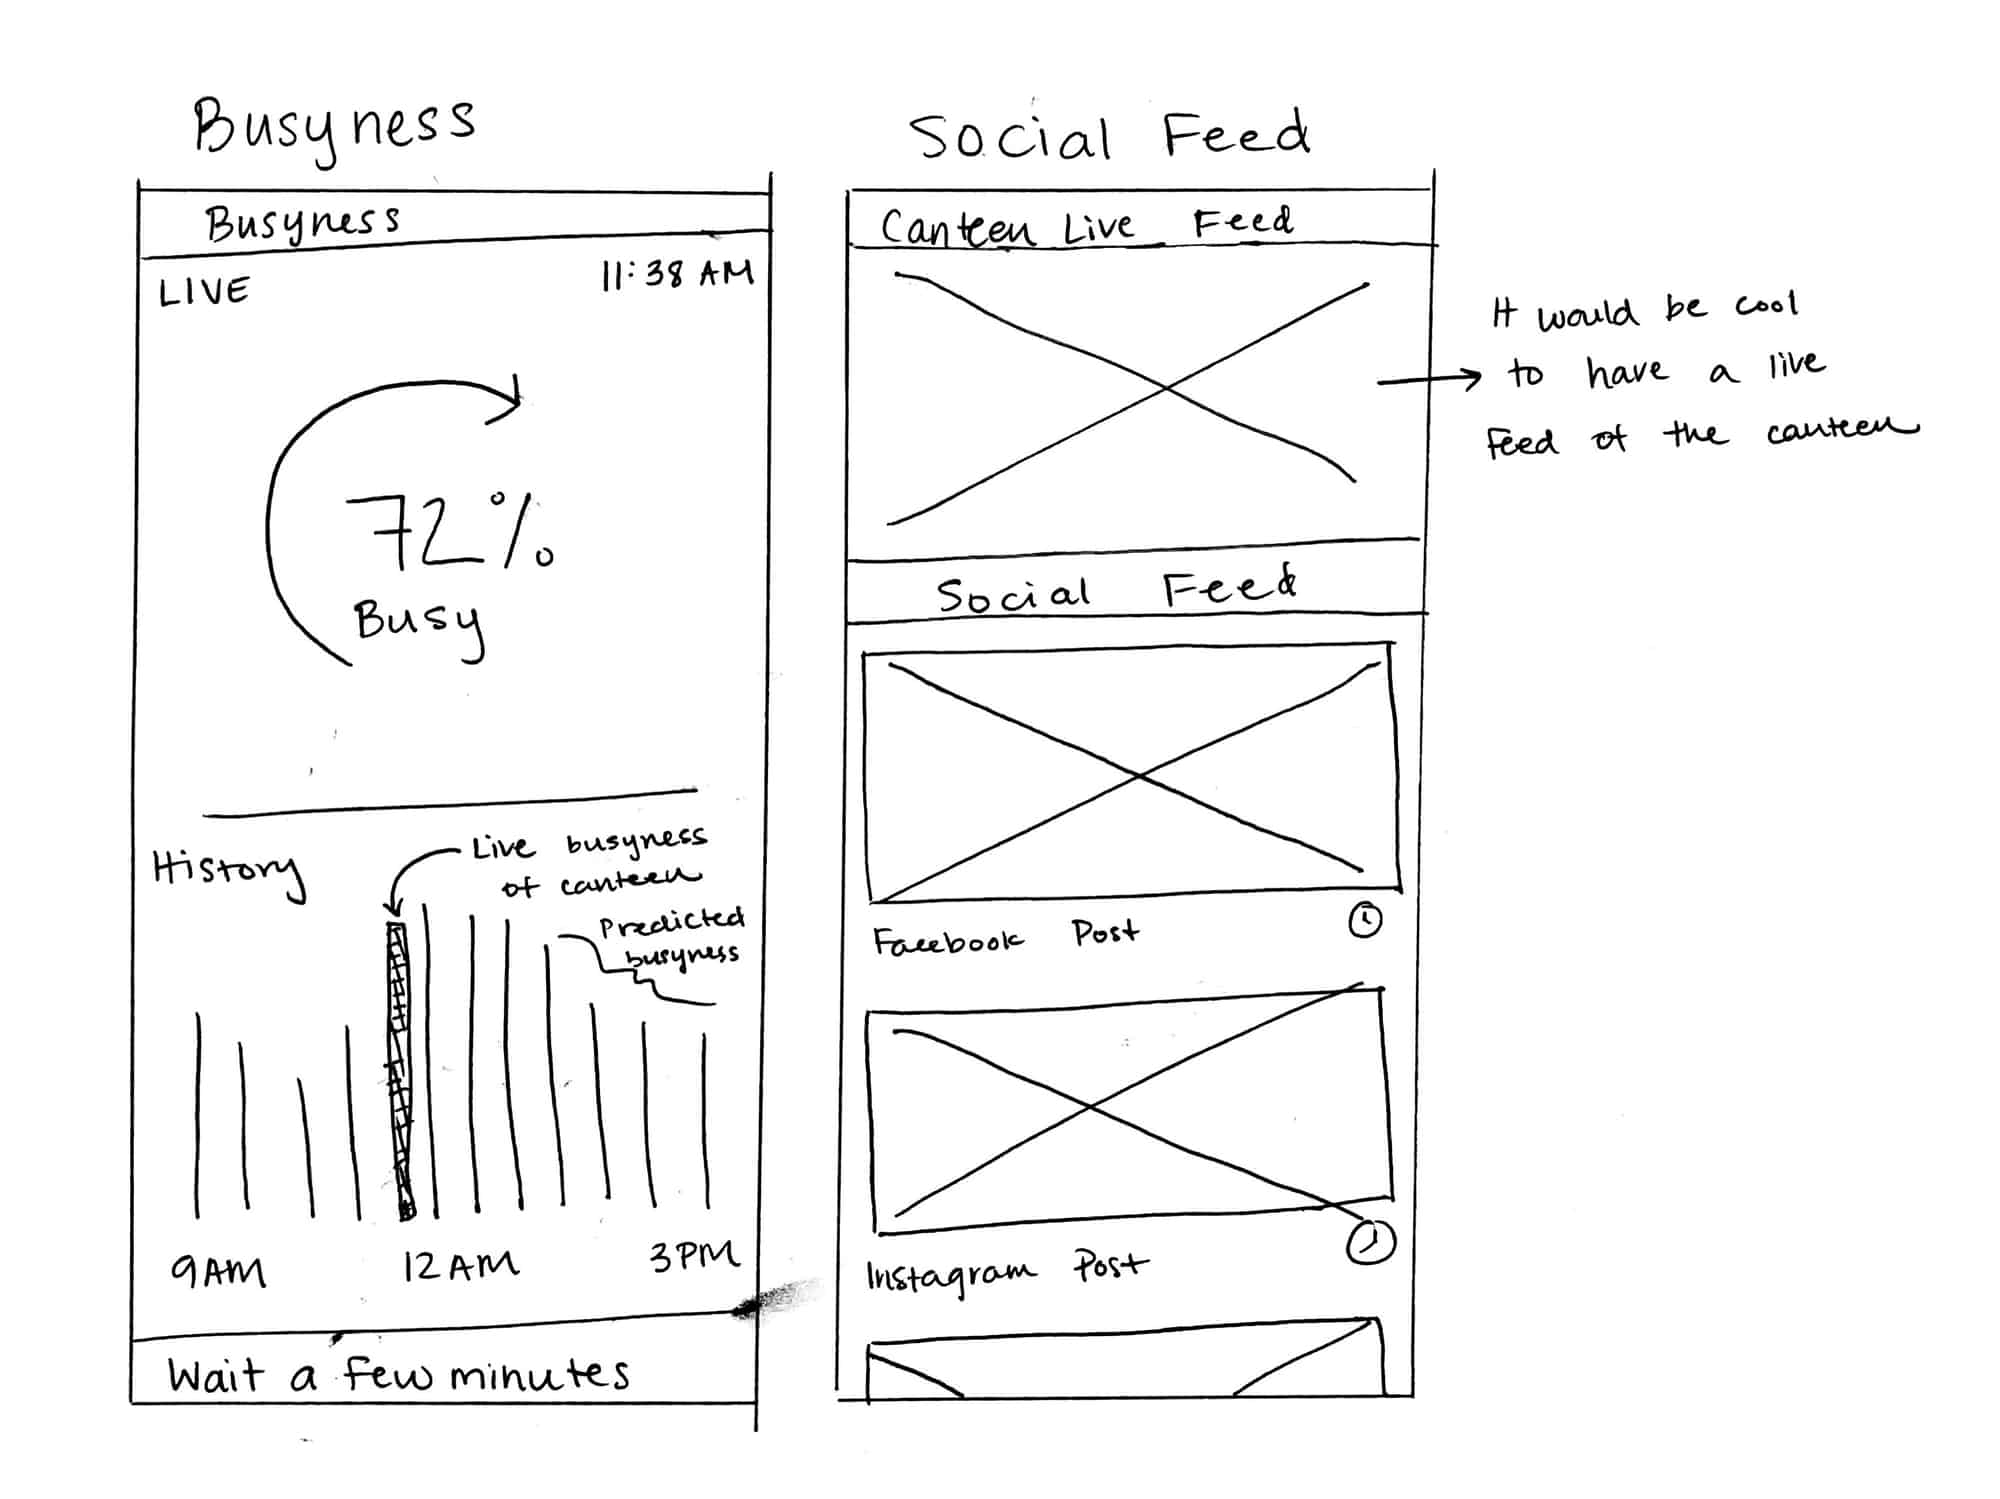 Busyness
Busyness
LIVE
11:38 AM
72%
Busy
History
Live busyness
of canteen
Predicted
busyness
9AM
12AM
3PM
Wait a few minutes
Social Feed
Canteen Live Feed
It would be cool
to have a live
Feed of the canteen
Social Feed
Facebook Post
Instagram Post